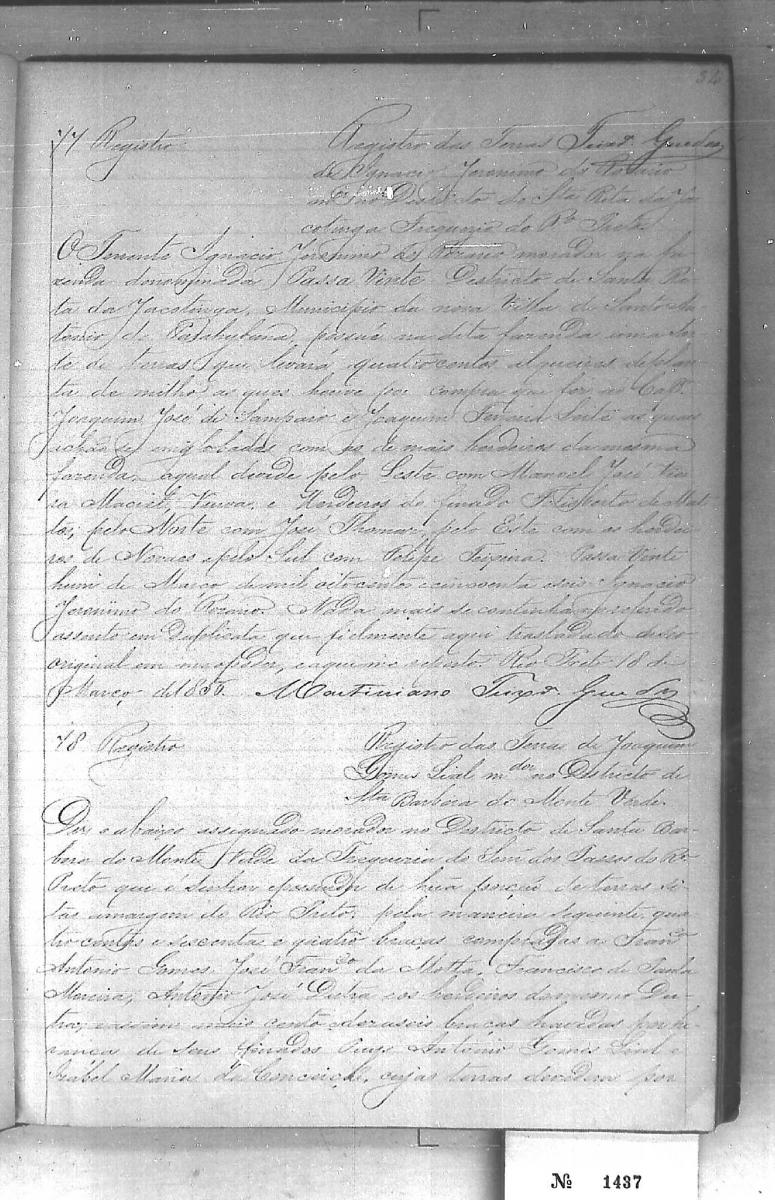 32
77 Registro
Registro das Terras Teixrª Guedes
de Ignacio Jeronimo do Rosario
no Districto de Sta Rita da Ja
cotinga Freguezia do Rº Preto
O Tenente Ignacio Jeronimo do Rozario morador na fa
zenda denominada Passa Vinte Districto de Santa Ri
ta da Jacotinga, Municipio da nova Villa de Santo An
tonio do Parahybuna, possue na dita fazenda uma sor
te de terras que levará quatro centos alqueires de plan
ta de milho as ques houve por compra que fez ao Capm.
Joaquim José de Sampaio e Joaquim Ferreira Leite as quaes
achão se englobadas com os de mais herdeiros da mesma
fazenda, a qual devide pelo Leste com Manoel José Viei
ra Maciel, Viuva, e Herdeiros do finado Felisberto de Mat
tos; pelo Norte com José Thomaz, pelo Este com os herdei
ros de Novaes e pelo Sul com Felipe Teixeira. Passa Vinte
hum de Março de mil oito centos e cincoenta e seis Ignacio
Jeronimo do Rozario. Nada mais se continha no referido
assento em duplicata que fielmente aqui trasladado do seo
original em meo poder, e aque me reporto. Rio Preto 18 de
Março de 1856. Martiniano Teixrª Guedes
78 Registro
Registro das Terras de Joaquim
Gomes Lial mdor no Districto de
Sta Barbora do Monte Verde.
Diz o abaixo assignado morador no Districto de Santa Bar-
bora do Monte Verde da Freguezia do Senr dos Passos do Rº
Preto que é Senhor e possuidor de hua porção de terras si-
tas amargem do Rio Preto, pela maneira seguinte, qua
tro centas e sescenta e quatro braças compradas a Franco
Antonio Gomes, José Franco da Motta, Francisco de Paula
Moreira, Antonio José Dutra e os herdeiros do mesmo Du-
tra, e assim mais cento e dezaseis braças havidas por he
rança de seus finados Pays Antonio Gomes Lial e
Izabel Maria da Conceição, cujas terras devidem por
Nº 1437